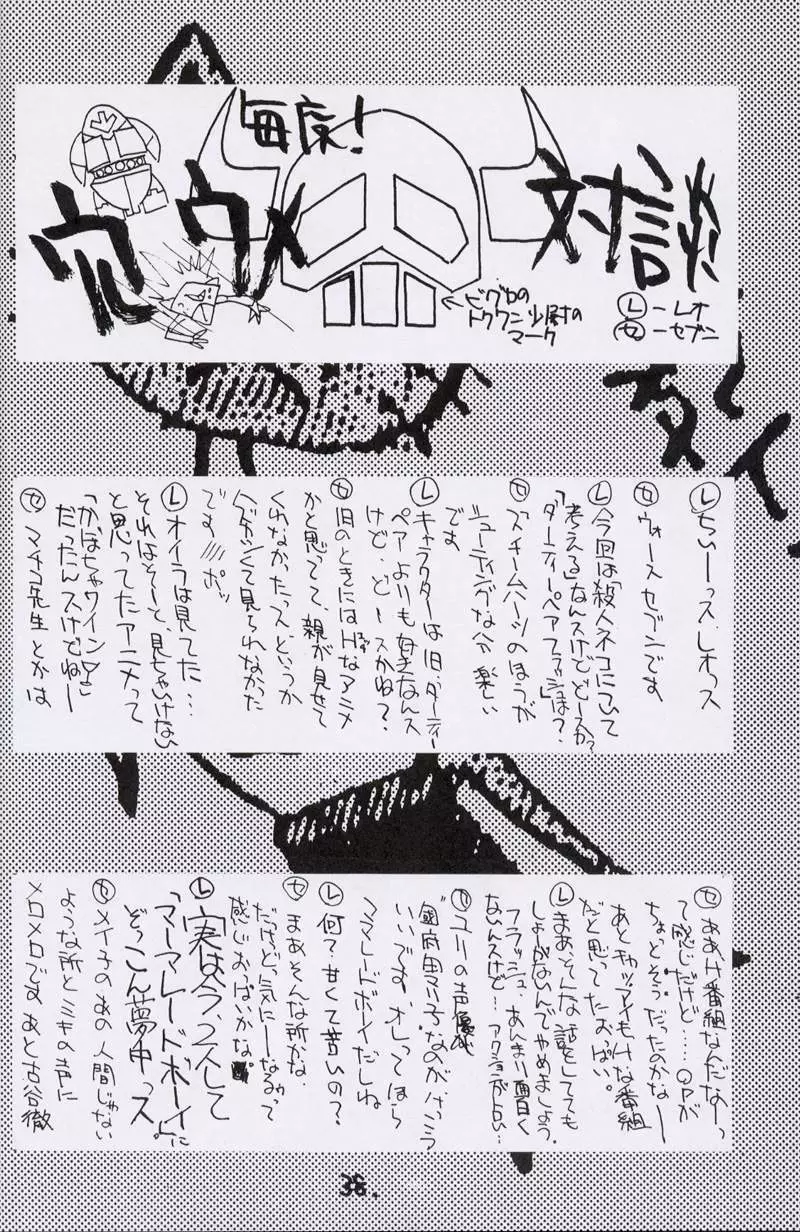 毎度!
穴ウメ
対談
←ビグロの
トクワン少尉の
マーク
Ⓛ-レオ
㋝-セブン
Ⓛちぃーっス、レオっス
㋝ウォースセブンです
Ⓛ今回は「殺人ネコについて
考える」なんスけどどースか?
「ダーティーペアフラッシュ」は?
㋝ズチームハーツのほうが
シューティングな分楽しい
です
Ⓛキャラクターは旧、ダーティー
ペアよりも好きなんス
けど、どースかね?
㋝旧のときにはHなアニメ
かと思ってて、親が見せて
くれなかったっス、というか
ハズかしくて見られなかった
です///ポッ
Ⓛオイラは見てた…
それはそーと、見ちゃいけない
と思ってたアニメって
「かぼちゃワイン♡」
だったんスけどねー
㋝マチコ先生とかは
㋝ああH番組なんだなーっ
て感じだけど…、OPが
ちょっとそうだったのかなー
あとキャッツアイもHな番組
だと思ってたおっぱい。
Ⓛまあ、そんな話をしてても
しょーがないんでやめましょう、
フラッシュ、あんまり面白く
ないんスけど…アクションが占い…
㋝ユリの声優が
"國府田マリ子"なのがけっこう
いいです、オレってほら
ママレードボイだしね
Ⓛ何?甘くて苦いの?
㋝まあそんな所かな、
だけど気にーなるゥって
感じおっぱいかな。
Ⓛ実は今、2人して
「マーマレードボーイ」に
ぞっこん夢中っス
㋝メイ子のあの人間じゃない
ような所とミキの声に
メロメロです、あと古谷徹
38.